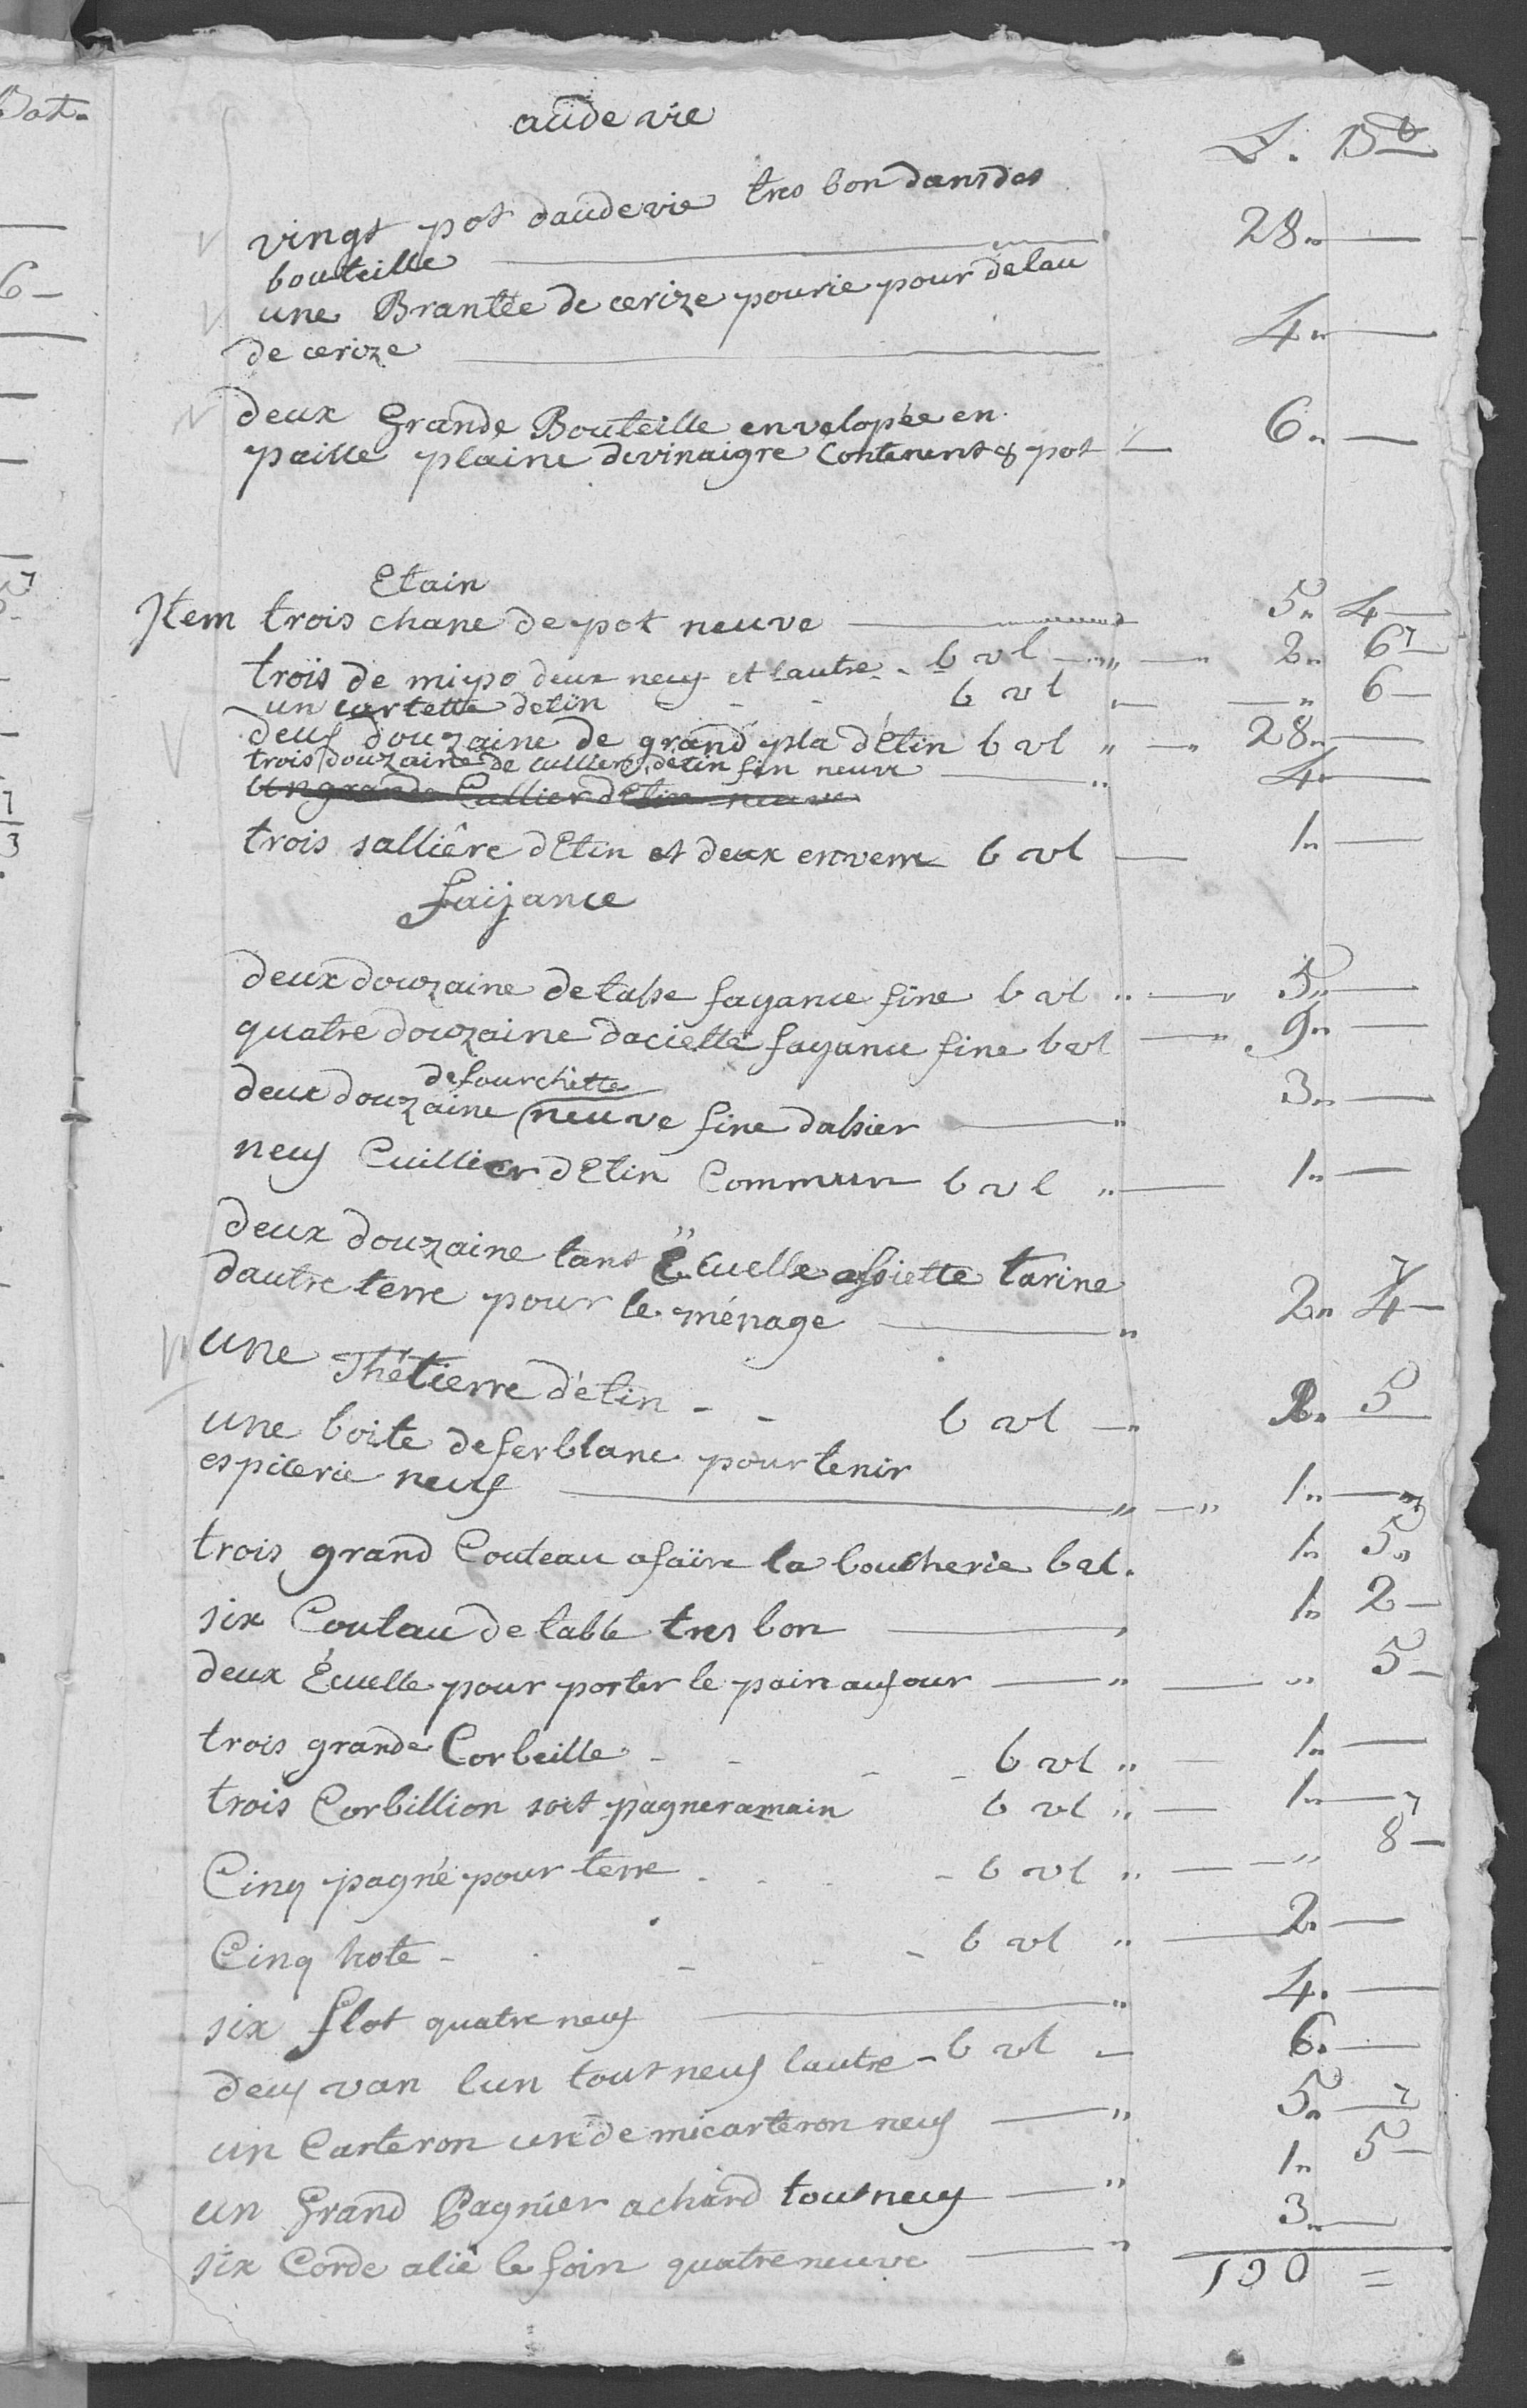 Bat.
aude vie
L. Bt
vingt pot daudevie tres bon dans des
bouteille 28 " —
une Brantée de cerize pourie pour delau
de cerize 4 " —
deux Grande Bouteille envelopée en
paille plaine devinaigre Contenent 8 pot 6 " —
Etain
Item trois chane de pot neuve 5 " 4 —
trois de mipo deux neuf et lautre - b vl 2 " 6 —
un cartette detin - - b vl " 6 —
deuf douzaine de grand pla d'Etin b vl 28 " —
trois douzaine de cullier detin fin neuve 4 —
un grande Cullier dEtin neuve
trois sallière dEtin et deux en verre b vl 1 " —
faijance
deux douzaine de tasse fayance fine b vl 5 " —
quatre douzaine daciette fayance fine b vl 9 " —
de fourchette
deux douzaine neuve fine dassier 3 " —
neuf Cuillier dEtin Commun b vl 1 " —
deux douzaine tant Ecuelle assiette tarine
dautre terre pour le ménage 2 " 4 —
une Thétierre détin - - b vl 2 " 5
une boite de ferblanc pour tenir
espiterie neuf 1 " —
trois grand Couteau afaire la boucherie b vl. 1 " 5 "
six Coutau de table tres bon 1 " 2 —
deux Écuelle pour porter le pain aufour " 5 —
trois grande Corbeille - - b vl 1 " —
trois Corbillion soit pagneramain b vl 1 " —
Cinq pagné pour terre - - b vl " 8 —
Cinq hote - - b vl 2 " —
six flot quatre neuf 4 . —
deuf van lun tout neuf lautre - b vl 6 . —
un Carteron un demicarteron neuf 5 " —
un Grand Pagnier achard tout neuf 1 " 5 —
six Corde alié le foin quatre neuve 3 " —
130 =